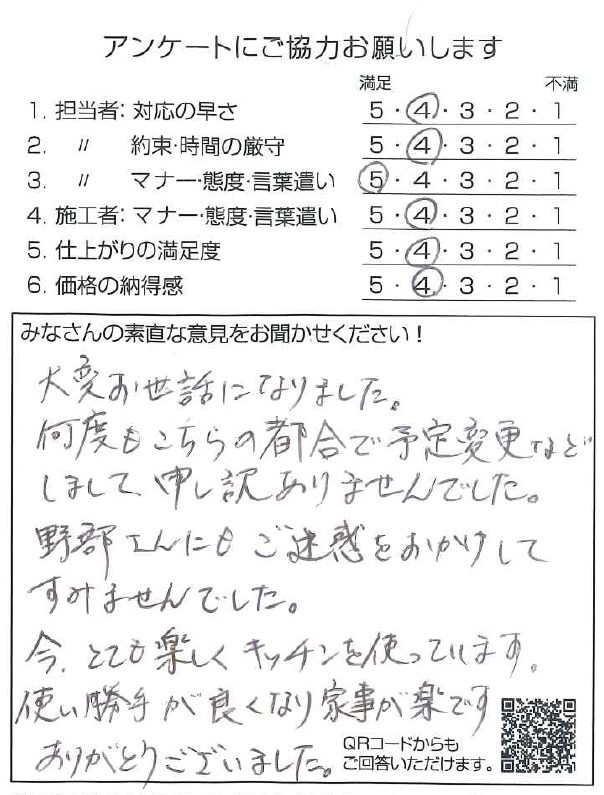 アンケートにご協力お願いします
満足 不満
1. 担当者: 対応の早さ 5・4・3・2・1
2. 〃 約束・時間の厳守 5・4・3・2・1
3. 〃 マナー・態度・言葉遣い 5・4・3・2・1
4. 施工者: マナー・態度・言葉遣い 5・4・3・2・1
5. 仕上がりの満足度 5・4・3・2・1
6. 価格の納得感 5・4・3・2・1
みなさんの素直な意見をお聞かせください!
大変お世話になりました。
何度もこちらの都合で予定変更など
しまして、申し訳ありませんでした。
野部さんにもご迷惑をおかけして
すみませんでした。
今、とても楽しくキッチンを使っています。
使い勝手が良くなり家事が楽です
ありがとうございました。
QRコードからも
ご回答いただけます。